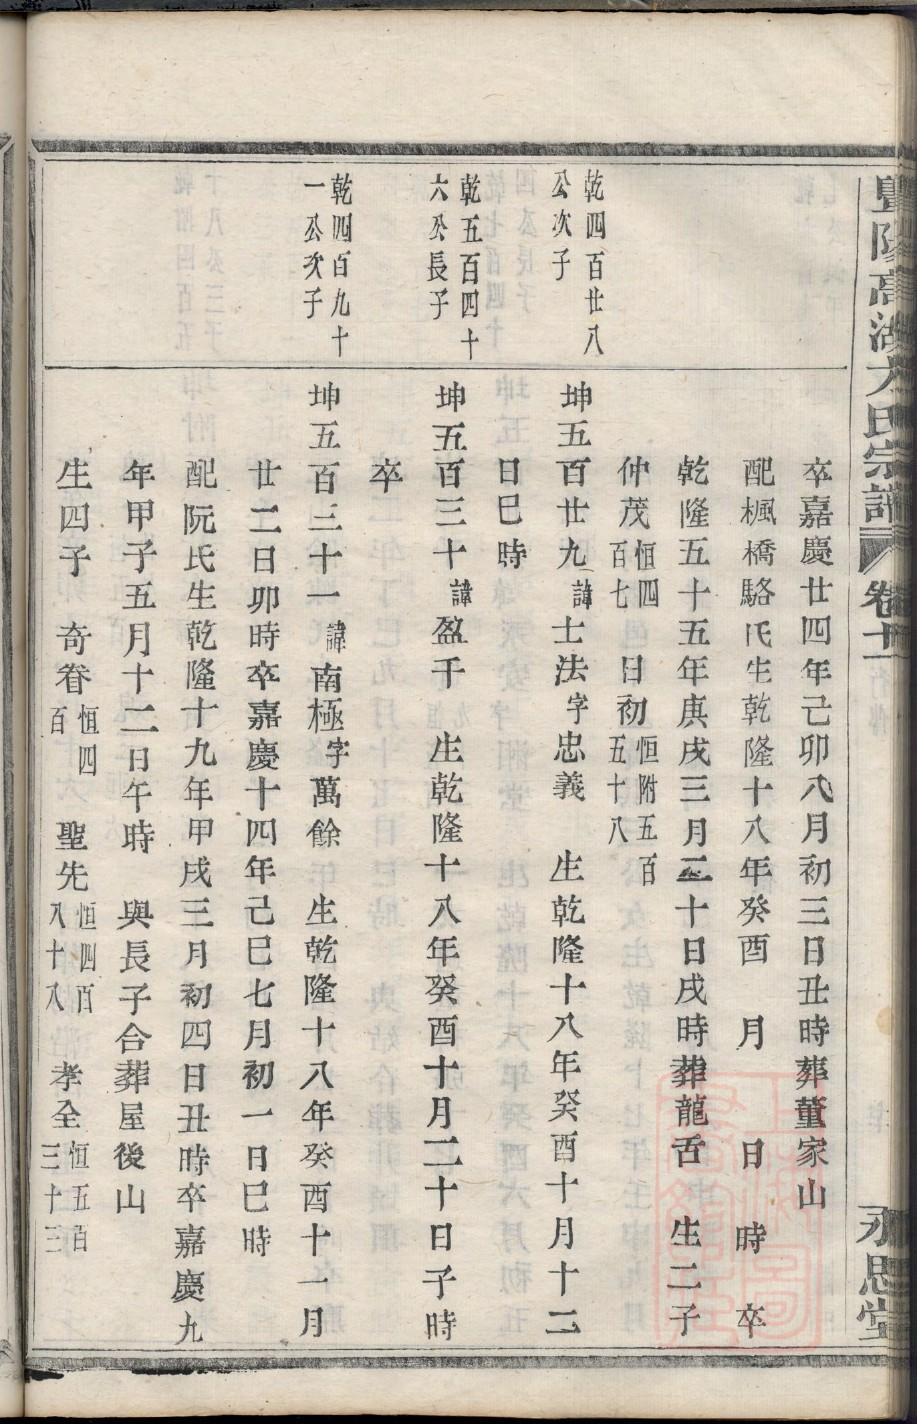 暨陽高湖方氏宗譜
卷十二
永思堂
卒嘉慶廿四年己卯八月初三日丑時葬董家山
配楓橋駱氏生乾隆十八年癸酉 月 日 時 卒
乾隆五十五年庚戌三月二十日戌時葬龍舌 生二子
仲茂恒四百七 日初恒附五百五十八
乾四百廿八公次子
坤五百廿九諱士法字忠義 生乾隆十八年癸酉十月十二
日巳時
乾五百四十六公長子
坤五百三十諱盈千 生乾隆十八年癸酉十月二十日子時
卒
乾四百九十一公次子
坤五百三十一諱南極字萬餘 生乾隆十八年癸酉十一月
廿二日卯時卒嘉慶十四年己巳七月初一日巳時
配阮氏生乾隆十九年甲戌三月初四日丑時卒嘉慶九
年甲子五月十二日午時 與長子合葬屋後山
生四子 奇眷恒四百 聖先恒四百八十八 孝全恒五百三十三